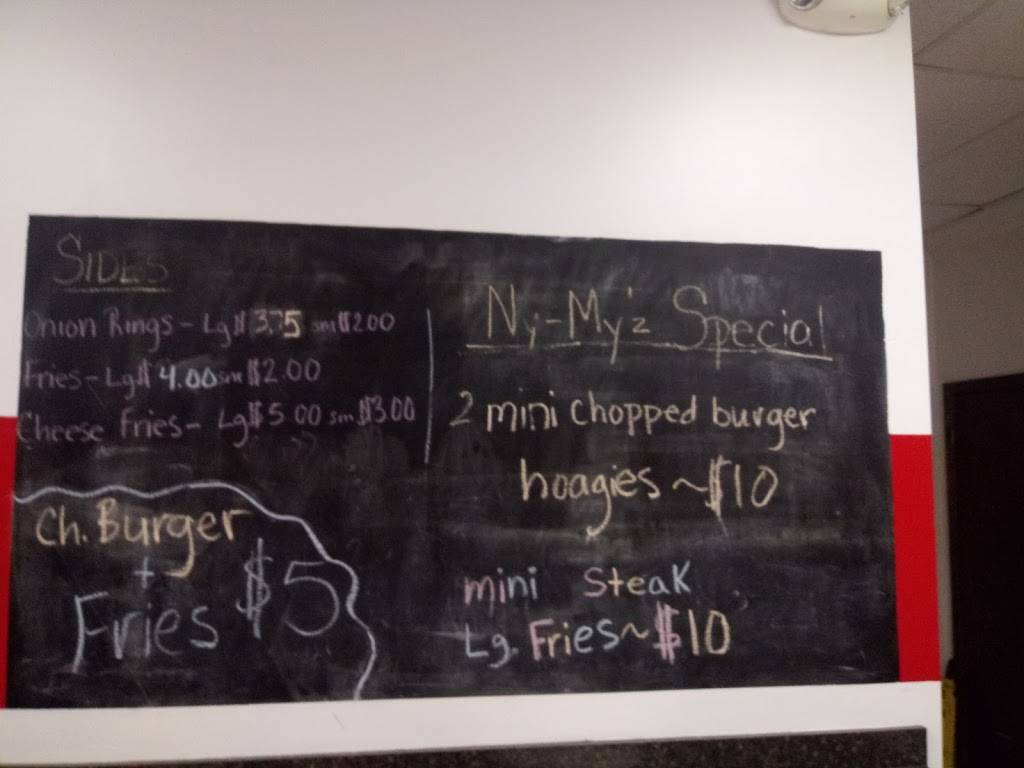 SIDES
Onion Rings - Lg $3.75 sm $2.00
Fries - Lg $4.00 sm $2.00
Cheese Fries - Lg $5.00 sm $3.00
Ch. Burger
+
Fries $5
Ny-My'z Special
2 mini chopped burger
hoagies ~ $10
mini steak
Lg. Fries ~ $10